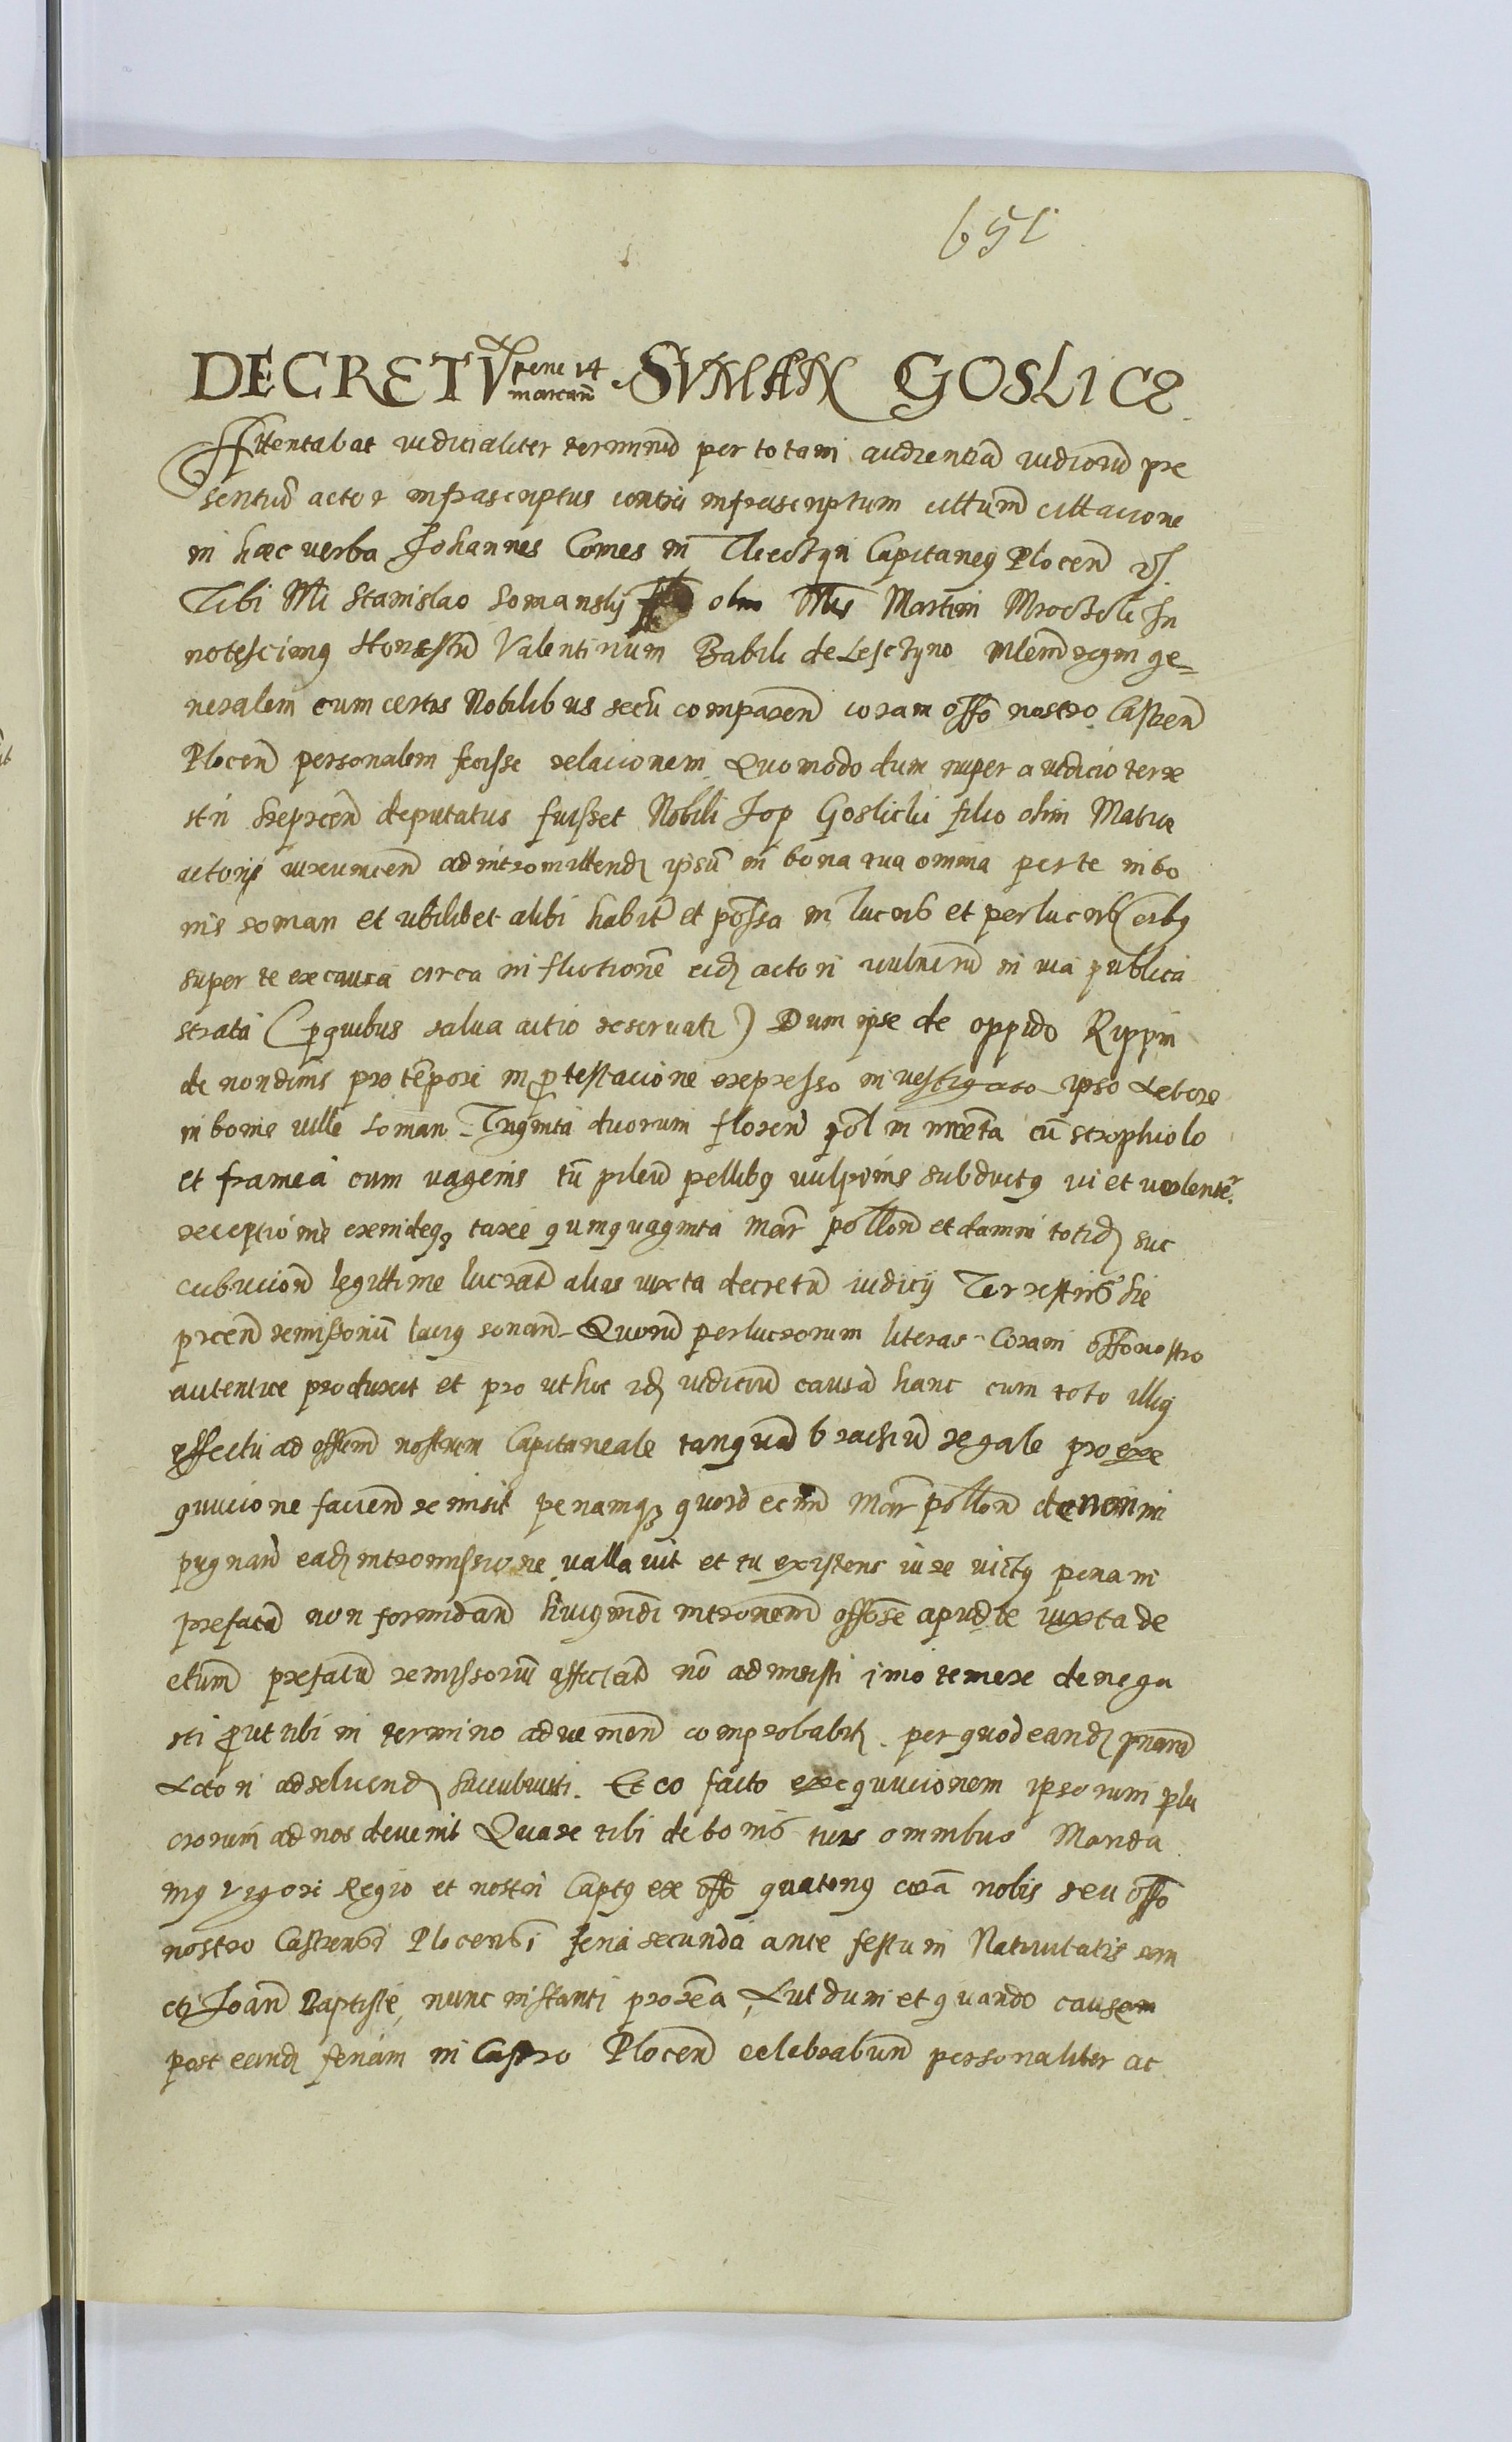 651
DECRETV pene 14 marcarū SVMAN GOSLICZ
Attentabat iudicialiter terminū per totam audientiā iudiciorū pre
sentiū actor infrascriptus contra infrascriptum cittatum cittacione
in hæc verba Johannes Comes in Capitaneg Plocen̄
Tibi Stanislao Somanskij olim Martini Mroczek In
notescimg Honestū Valentinum Babik de Lesczyno regni ge=
neralem cum certis Nobilibus secū comparen̄ coram offō nostro Castren̄
Plocen̄ personalem fecisse relacionem Quomodo dum nuper a iudicio terre
stri Sieprcen̄ deputatus fuisset Nobili Jop Goslicki filio olim Mathie
actori ad intromittend ipsū in bona tua omnia per te in bo
nis soman et ubilibet alibi habita et possessa in lucris et perlucris
super te ex causa circa inflictionē eid actori vulnerū in via publica
strata (pro quibus salua actio reseruatr) Dum ipse de oppido Rippin
de nondinis pro tempore in protestacione expresso inuestigato ipso Actore
in bonis ville soman Triginta duorum floren̄ pol in moneta cū strophiolo
et framea cum vaginis tū pileū pellibg vulpinis subductg vi et violenter
receptionis exindeqз taxe quinquaginta mar pollon̄ et damni totid suc
cubucion̄ legittime lucrat alias iuxta decretū iudicij Terrestris Sie
prcen̄ remissoriū lacius sonan̄ Quorū perlucrorum literas Coram offō nostro
autentice produxit et pro ut hic id iudiciū causā hanc cum toto illig
effectu ad officium nostrum Capitaneale tanquā brachiū regale pro exe
quucione facien̄ remisit penamqз quordecim Mar pollon̄ denomini
pugnan̄ ead intromissione vallauit et tu existens iure victg penam
prefatā non formidan̄ huigmodi intronem offose apud te iuxta de
cretum prefatū remissoriū nō admisisti imo temere denega
sti prout tibi in termino aduenien̄ comprobabitr per quod eand
Actori ad soluend succubuisti. Et eo facto exequucionem ipsorum plu
crorum ad nos deuenit Quare tibi de bonis tuis omnibus Manda
mg rigore Regio et nostri Captg ex offō quateng corā nobis seu offō
nostro Castrensi Plocensi feria secunda ante festum Natiuitatis san
cti Joan̄ Baptiste, nunc instanti, Aut dum et quando causem
post eand feriam in Castro Plocen̄ celebrabun̄ personaliter ac